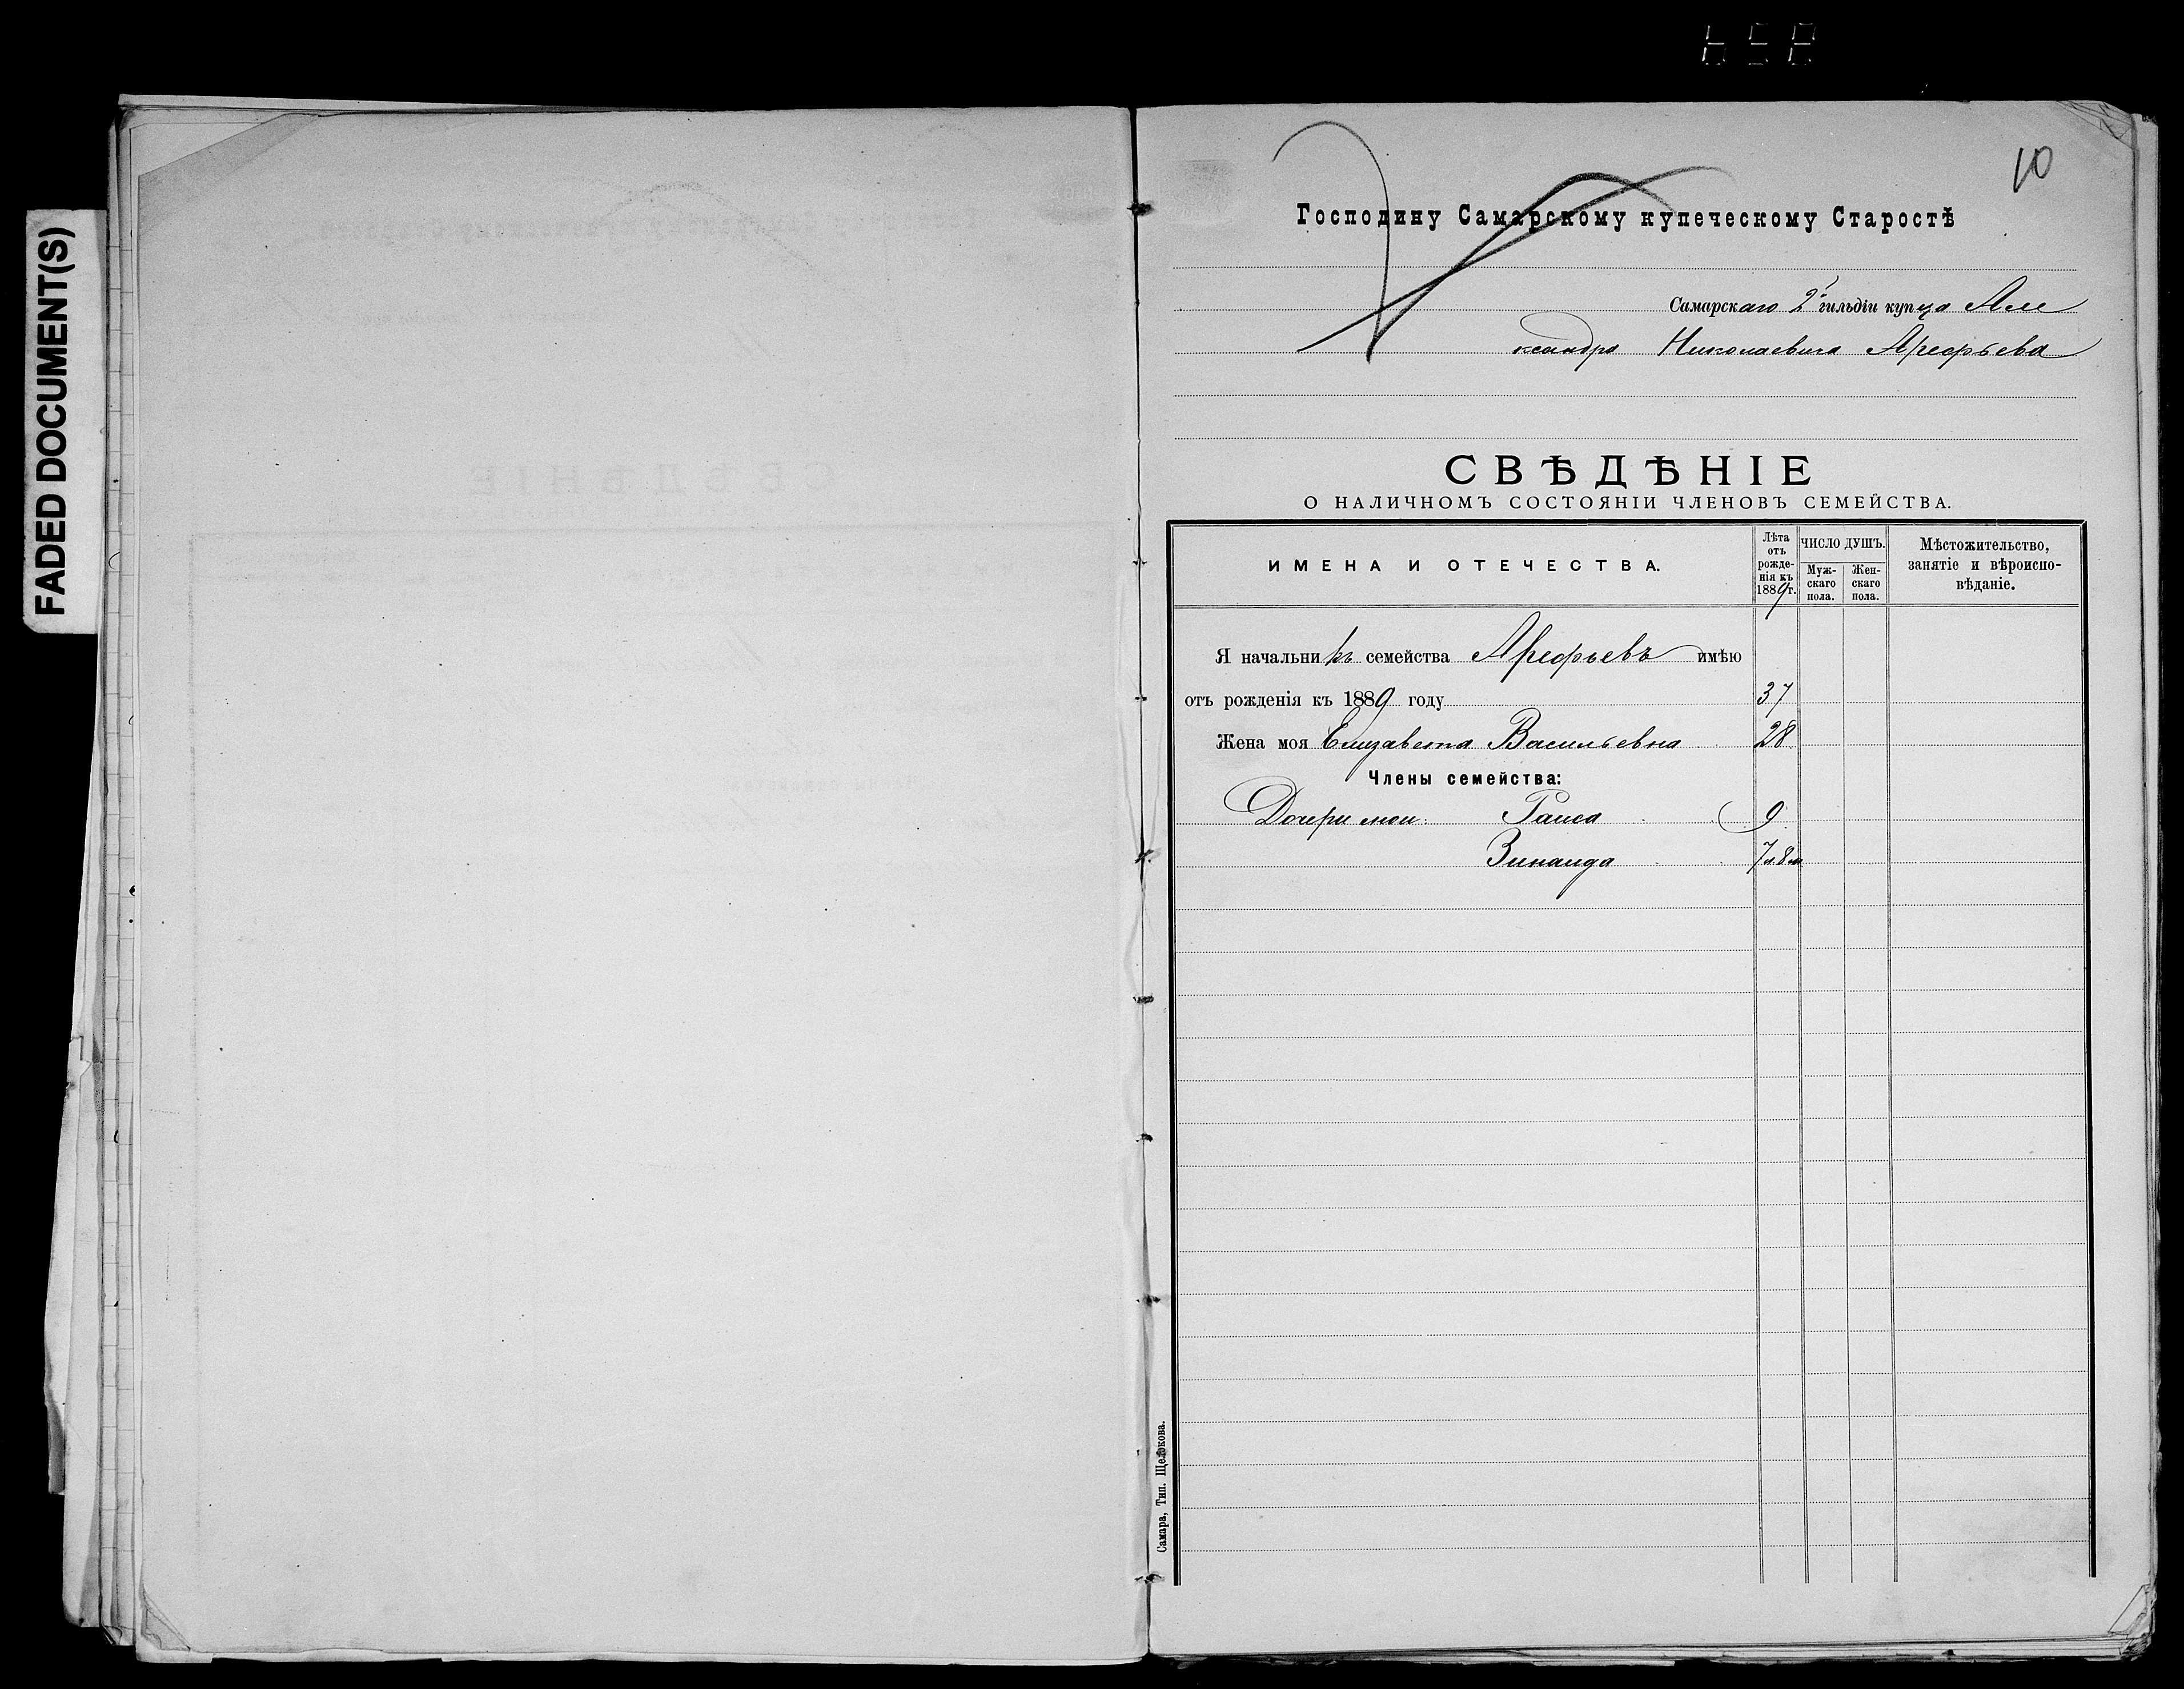 FADED DOCUMENT(S)
10
Господину Самарскому купеческому Старостѣ
Самарскаго 2й гильдіи купца Але
ксандра Николаевича Арефьева
СВѢДѢНІЕ
О НАЛИЧНОМЪ СОСТОЯНІИ ЧЛЕНОВЪ СЕМЕЙСТВА.
ИМЕНА И ОТЕЧЕСТВА.
Лѣта
отъ
рожде-
нія къ
1889г.
ЧИСЛО ДУШЪ.
Муж-
скаго
пола.
Жен-
скаго
пола.
Мѣстожительство,
занятіе и вѣроиспо-
вѣданіе.
Я начальникъ семейства Арефьевъ имѣю
отъ рожденія къ 1889 году 37
Жена моя Елизавета Васильевна 28
Члены семейства:
Дочери мои: Раиса 9
Зинаида 7л8м
Самара, Тип. Щелокова.